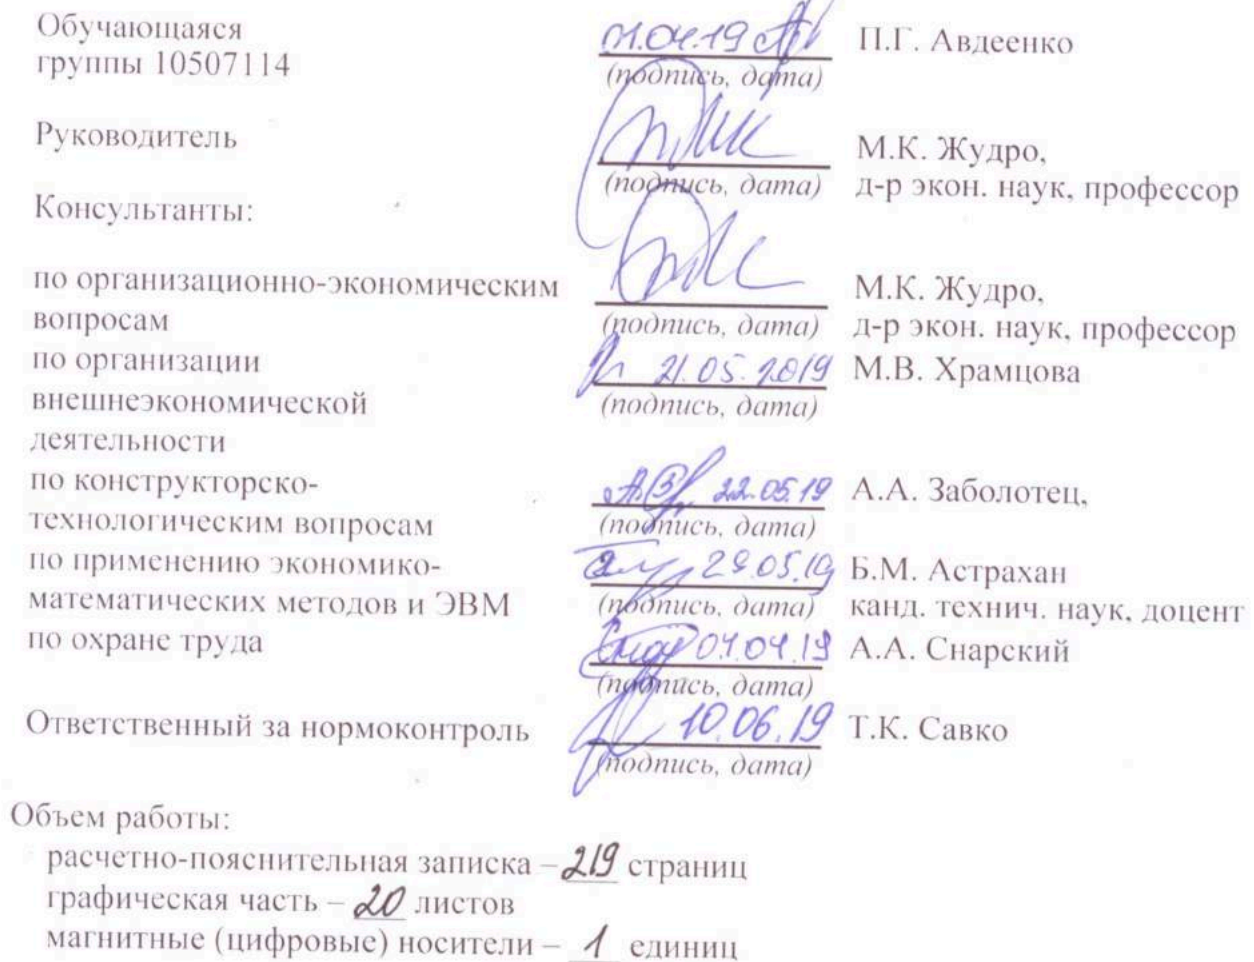 Обучающаяся
группы 10507114
01.04.19
(подпись, дата)
П.Г. Авдеенко
Руководитель
(подпись, дата)
М.К. Жудро,
д-р экон. наук, профессор
Консультанты:
по организационно-экономическим
вопросам
(подпись, дата)
М.К. Жудро,
д-р экон. наук, профессор
по организации
внешнеэкономической
деятельности
21.05.2019
(подпись, дата)
М.В. Храмцова
по конструкторско-
технологическим вопросам
22.05.19
(подпись, дата)
А.А. Заболотец,
по применению экономико-
математических методов и ЭВМ
29.05.19
(подпись, дата)
Б.М. Астрахан
канд. технич. наук, доцент
по охране труда
04.04.19
(подпись, дата)
А.А. Снарский
Ответственный за нормоконтроль
10.06.19
(подпись, дата)
Т.К. Савко
Объем работы:
расчетно-пояснительная записка – 219 страниц
графическая часть – 20 листов
магнитные (цифровые) носители – 1 единиц